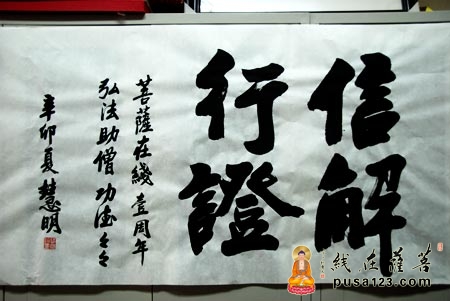 信解
行證
菩薩在綫壹周年
弘法助僧 功德々々
辛卯夏 慧明
菩薩在线
pusa123.com